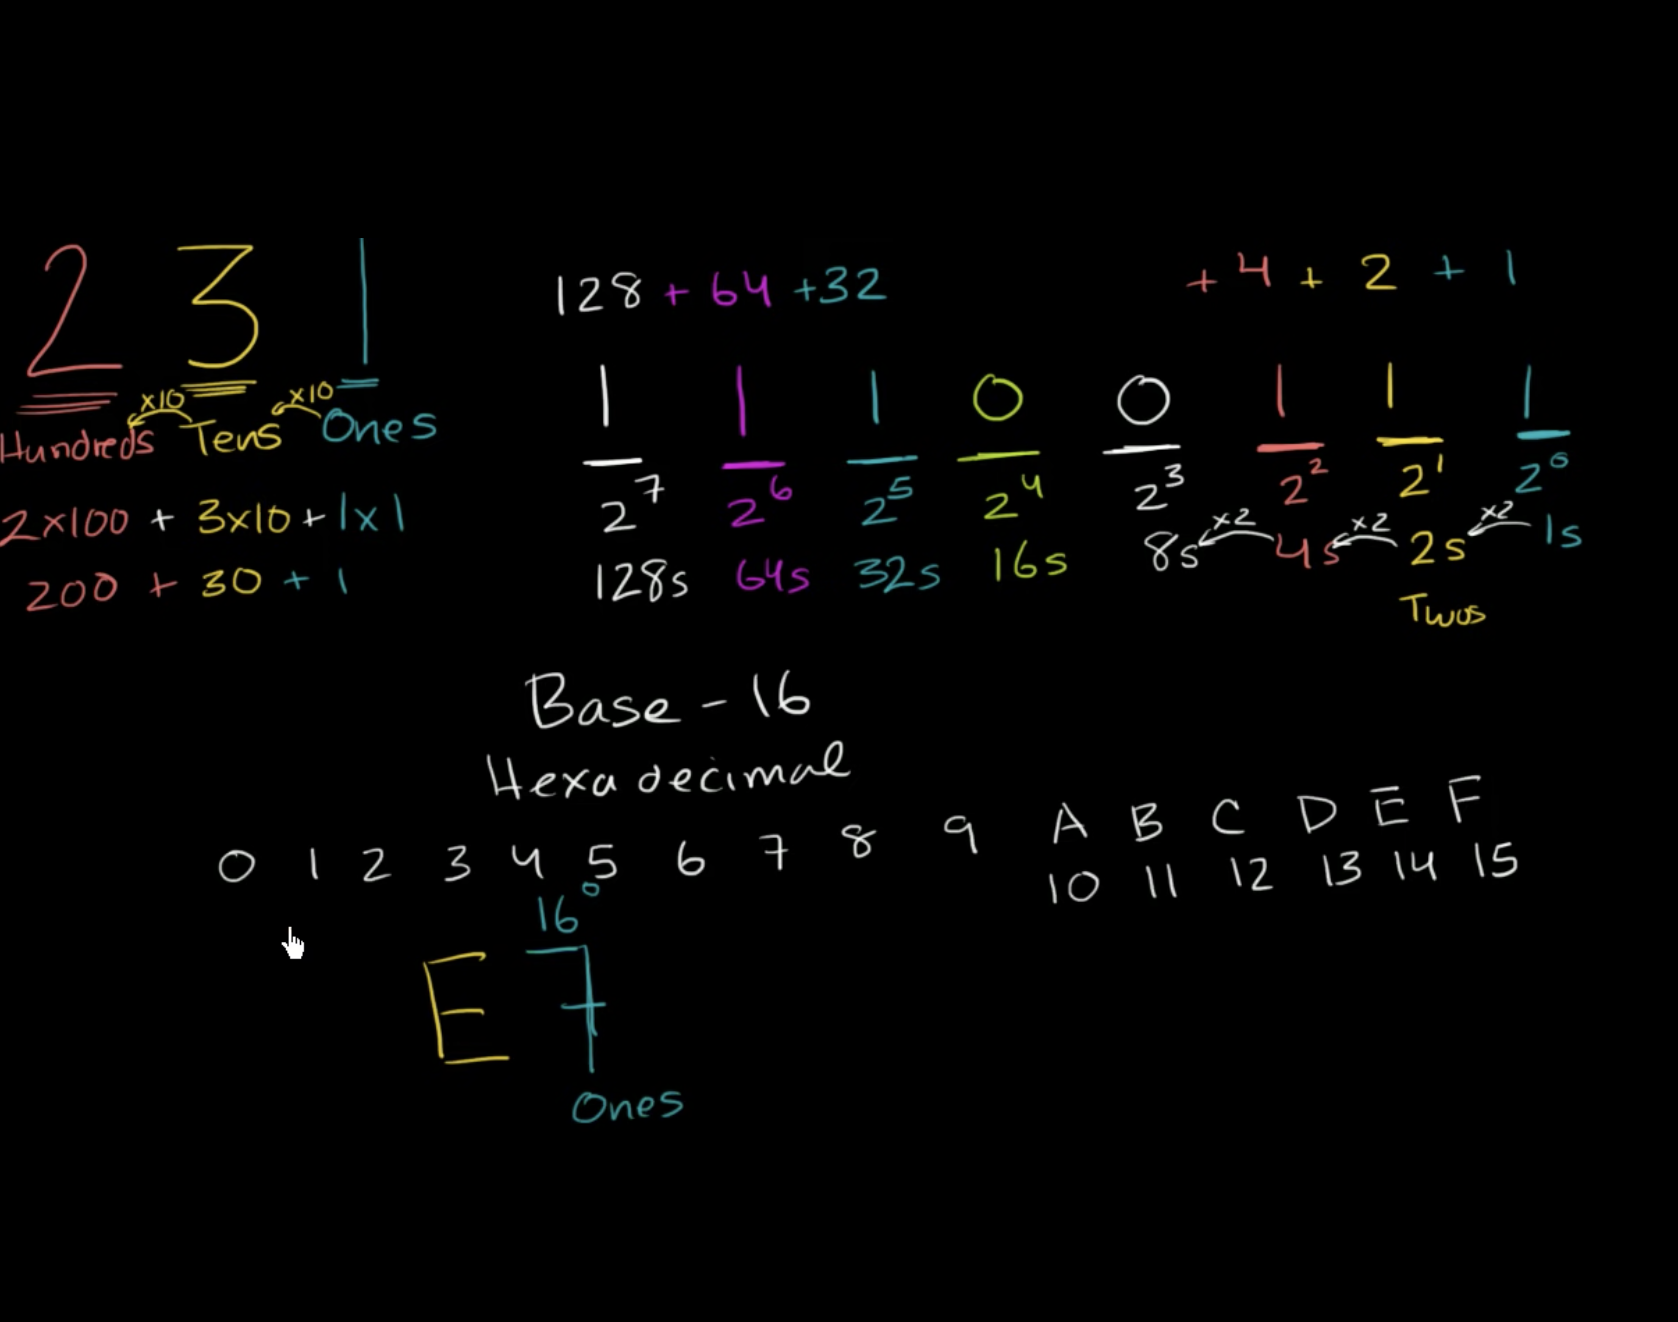 2 3 1
x10 x10
Hundreds Tens Ones
2x100 + 3x10 + 1x1
200 + 30 + 1
128 + 64 +32 + 4 + 2 + 1
1 1 1 0 0 1 1 1
2^7 2^6 2^5 2^4 2^3 2^2 2^1 2^0
x2 x2 x2
128s 64s 32s 16s 8s 4s 2s 1s
Twos
Base - 16
Hexadecimal
0 1 2 3 4 5 6 7 8 9 A B C D E F
10 11 12 13 14 15
16^0
E 7
Ones